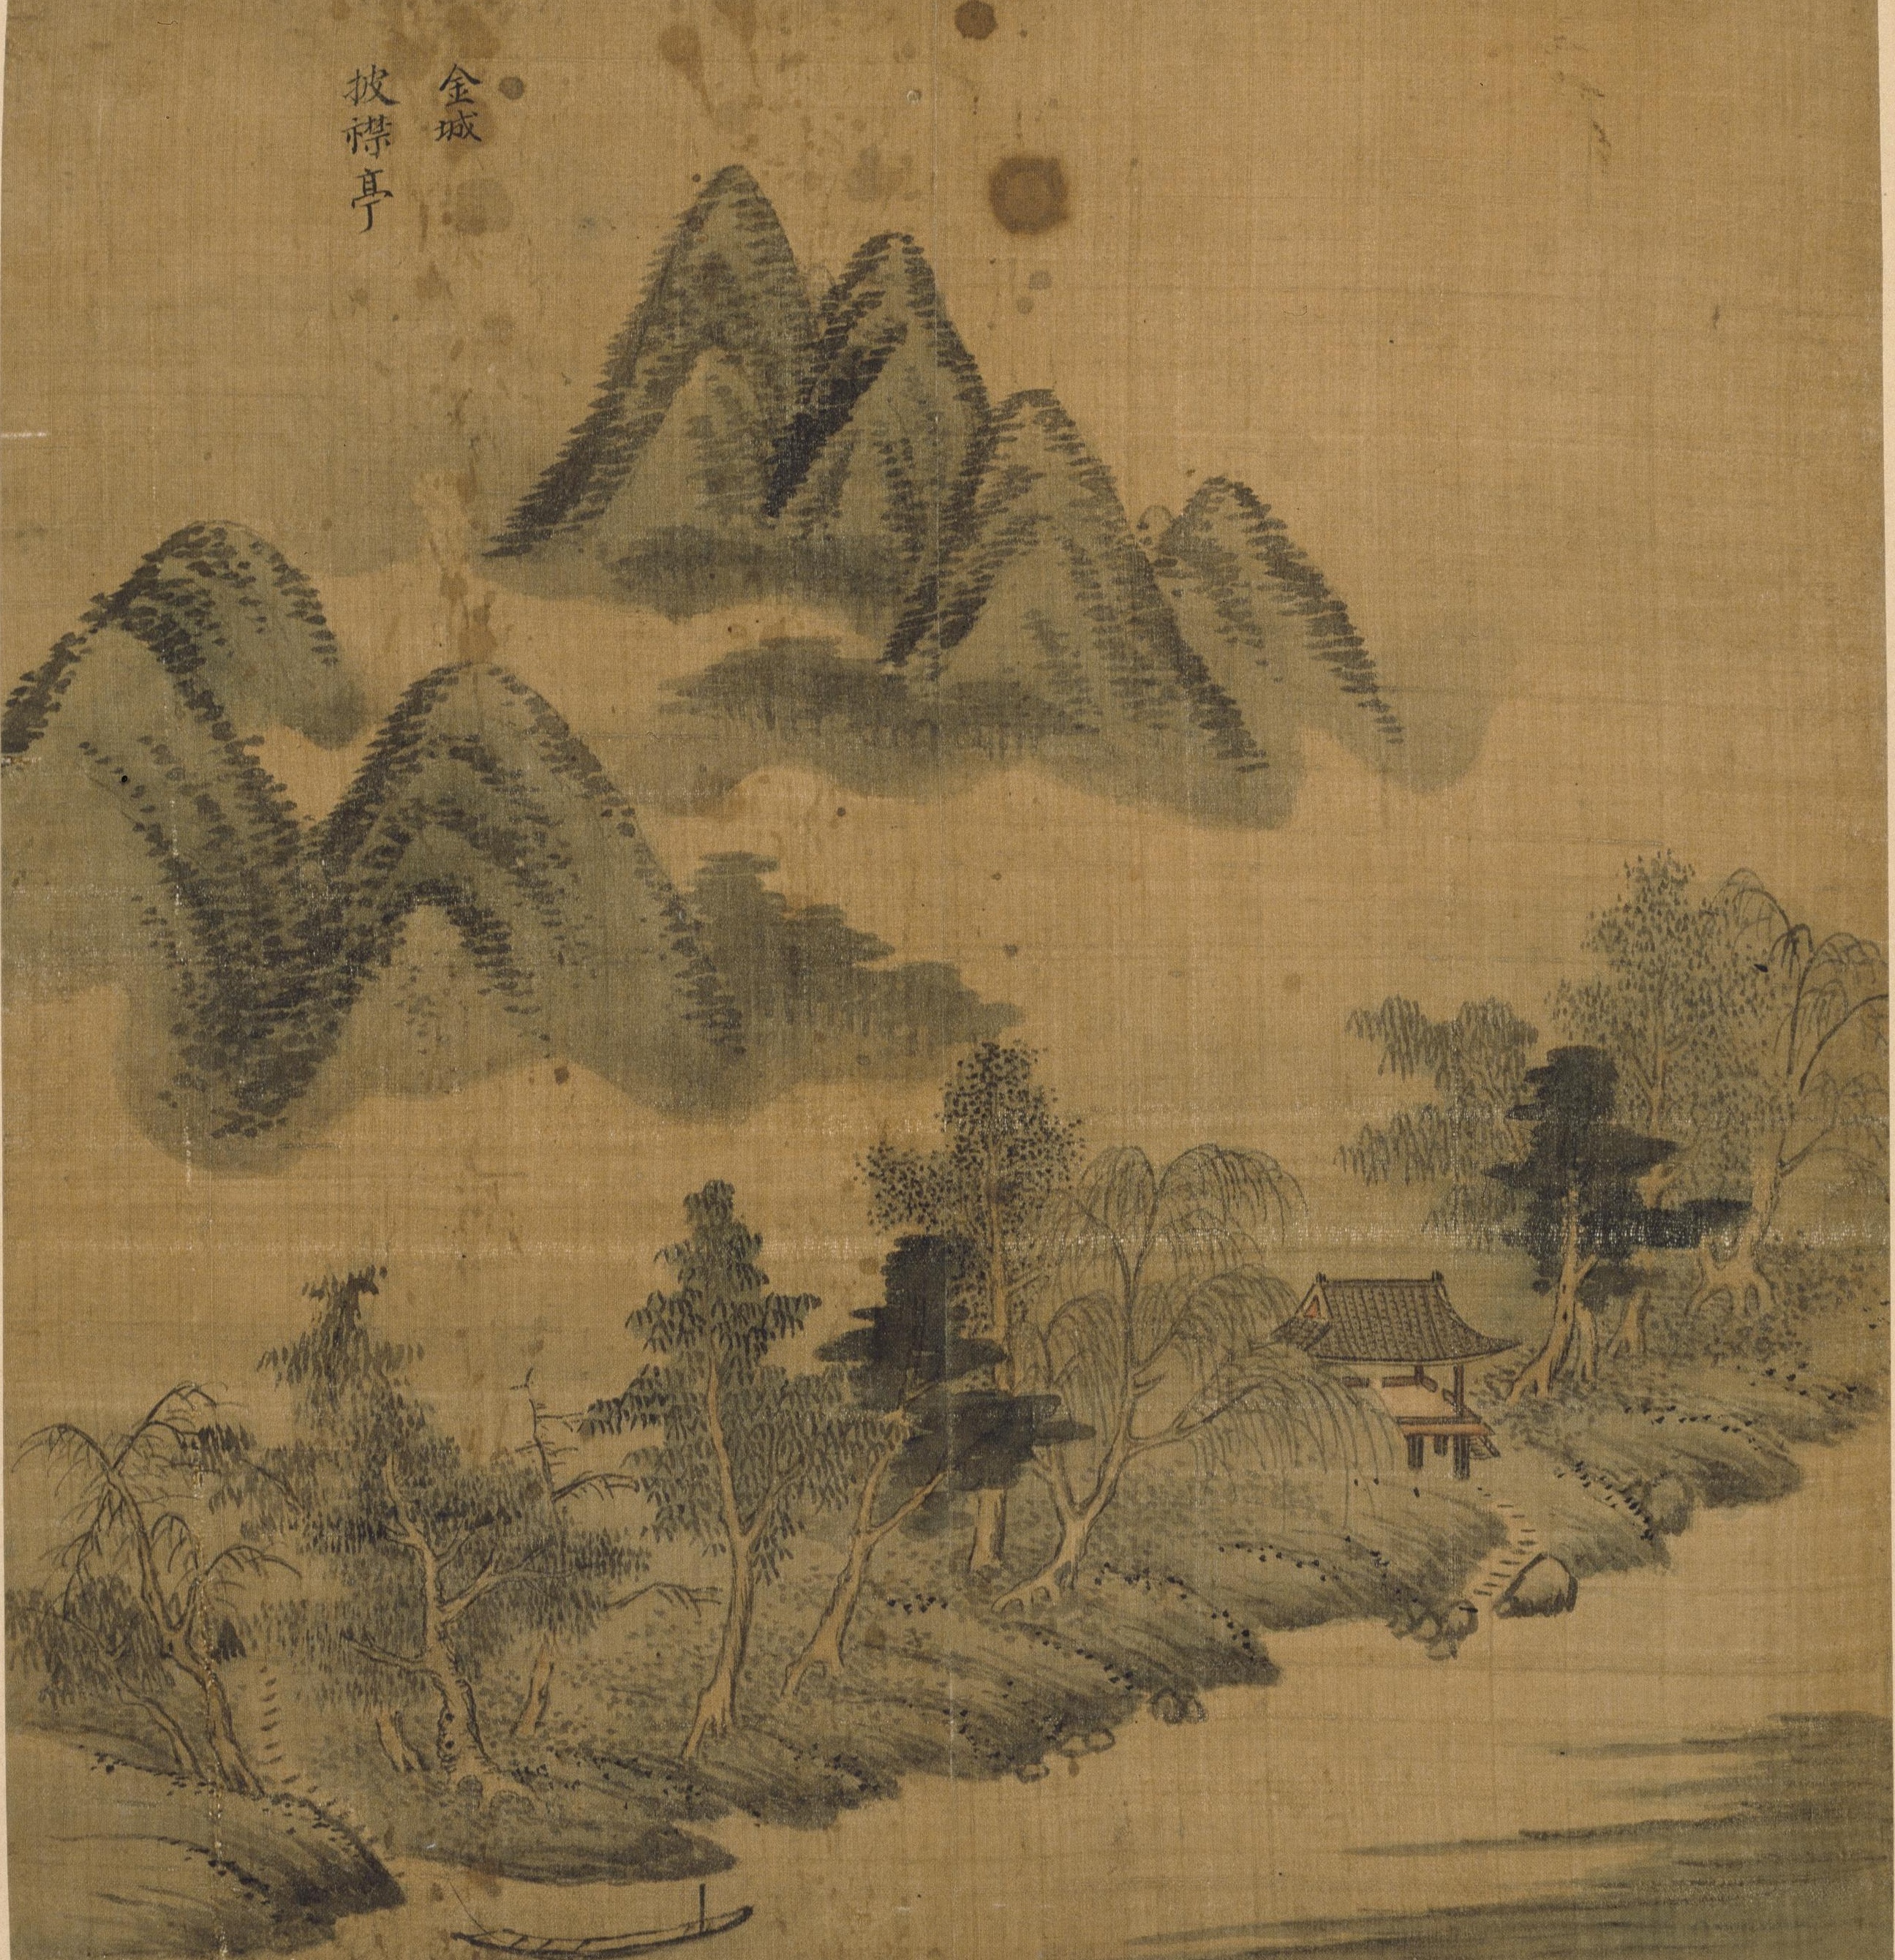 金城
披襟亭